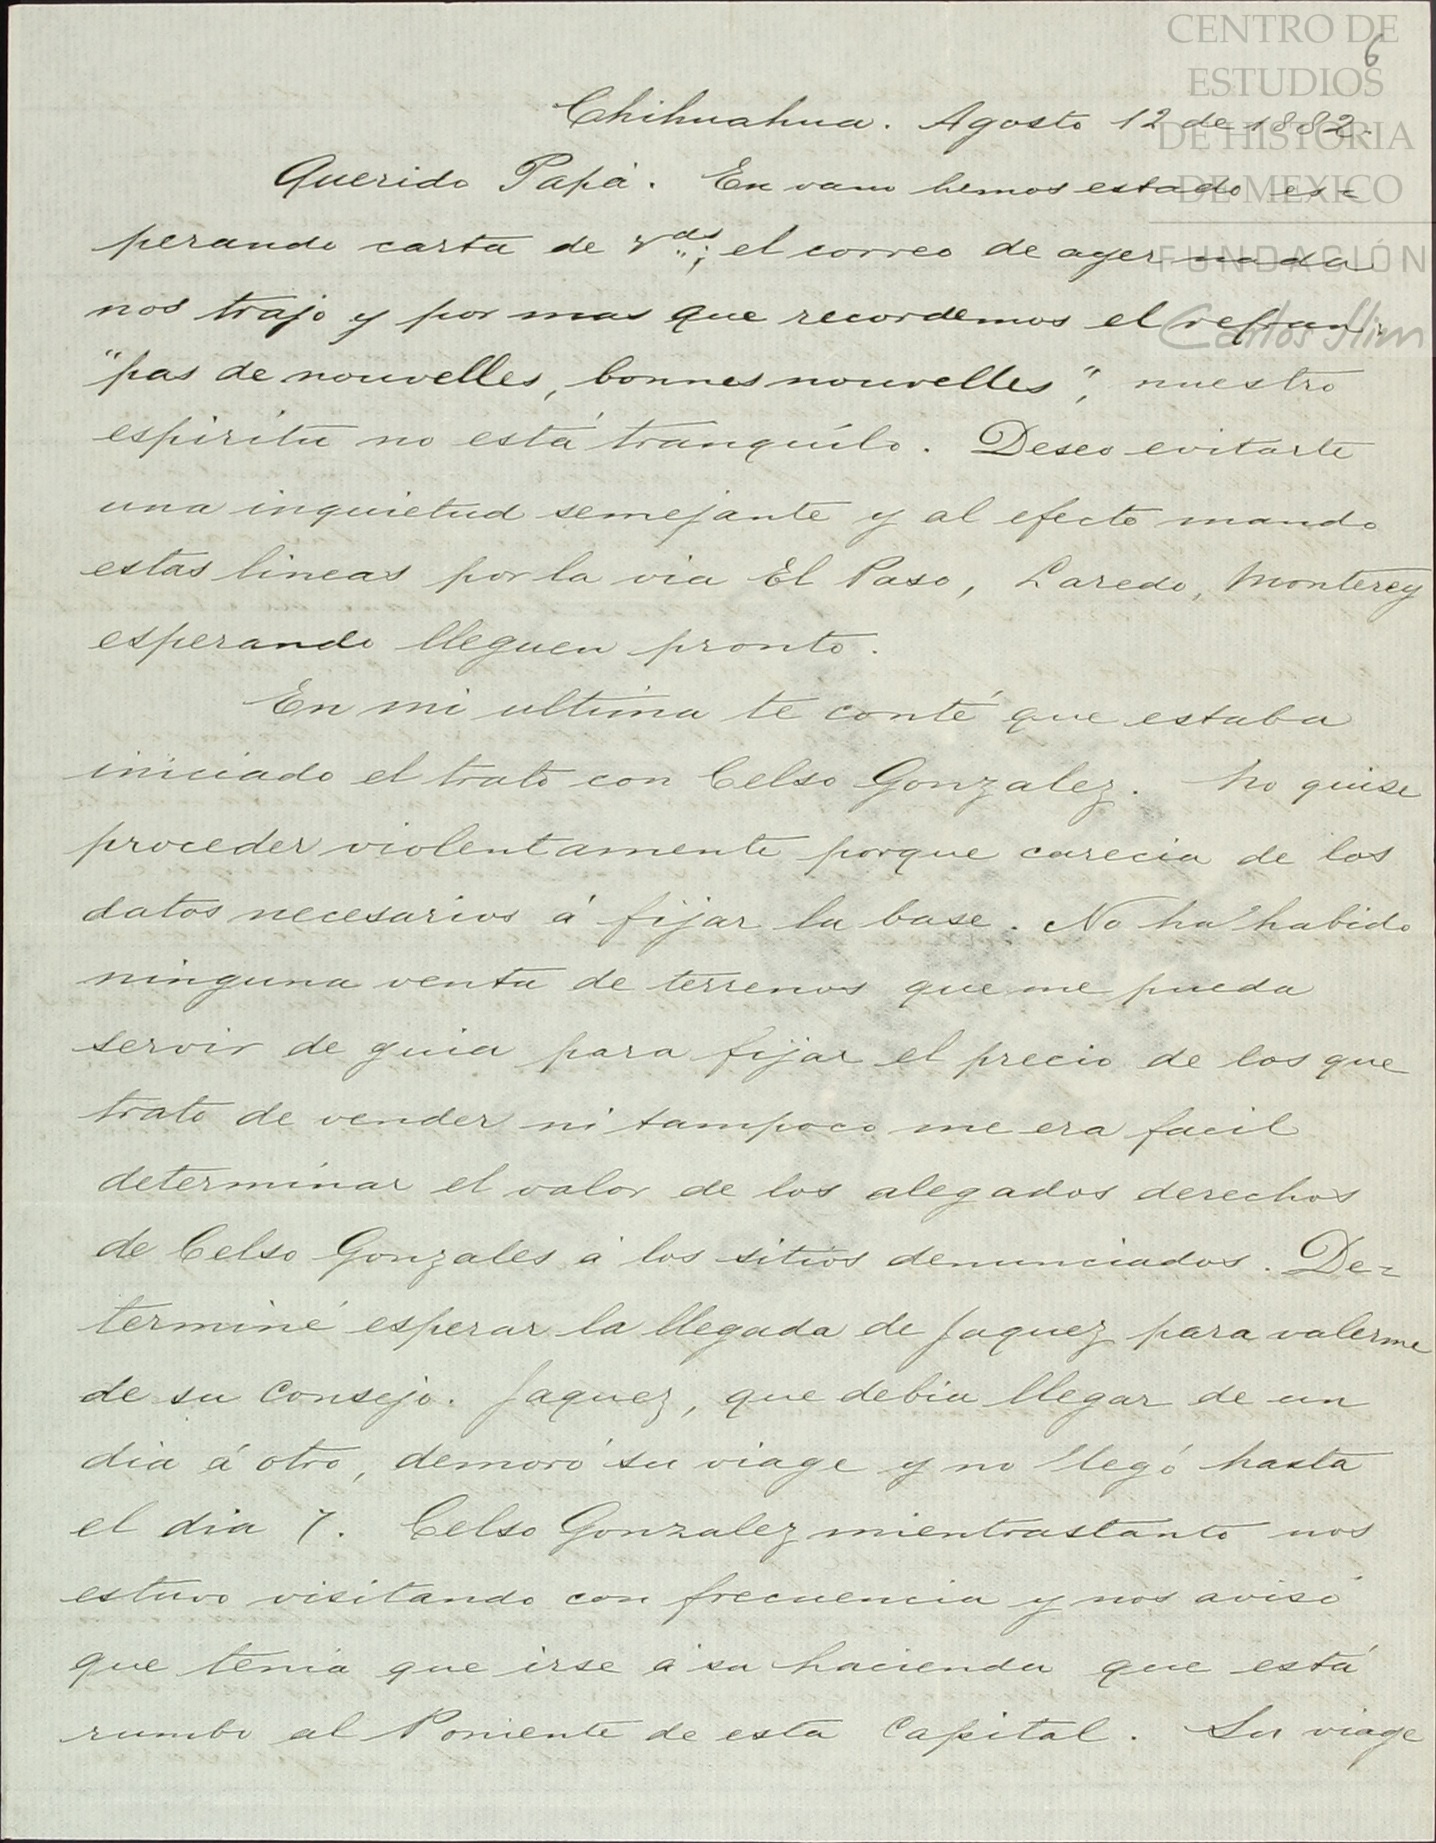 CENTRO DE
ESTUDIOS
DE HISTORIA
DE MEXICO
FUNDACIÓN
Carlos Slim
6
Chihuahua. Agosto 12 de 1882.
Querido Papá. En vano hemos estado es=
perando carta de Vds; el correo de ayer nada
nos trajo y por mas que recordemos el refran:
"pas de nouvelles, bonnes nouvelles", nuestro
espiritu no está tranquilo. Deseo evitarte
una inquietud semejante y al efecto mando
estas lineas por la via El Paso, Laredo, Monterey
esperando lleguen pronto.
En mi ultima te conté que estaba
iniciado el trato con Celso Gonzalez. No quise
proceder violentamente porque carecia de los
datos necesarios á fijar la base. No ha habido
ninguna venta de terrenos que me pueda
servir de guia para fijar el precio de los que
trato de vender ni tampoco me era facil
determinar el valor de los alegados derechos
de Celso Gonzales á los sitios denunciados. De=
terminé esperar la llegada de Jaquez para valerme
de su consejo. Jaquez, que debia llegar de un
dia á otro, demoró su viage y no llegó hasta
el dia 7. Celso Gonzalez mientrastanto nos
estuvo visitando con frecuencia y nos avisó
que tenia que irse á su hacienda que está
rumbo al Poniente de esta Capital. Su viage